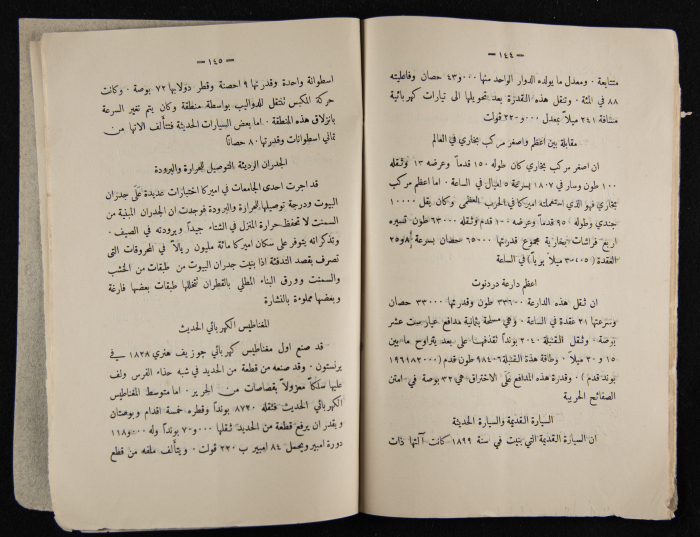 — ١٤٤ —
متتابعة . ومعدل ما يولده الدوار الواحد منها ٤٣٠٠٠ حصان وفاعليته
٨٨ في المئة . وتنقل هذه القدرة بعد تحويلها الى تيارات كهربائية
مسافة ٢٤١ ميلاً بمعدل ٢٢٠٠٠٠ فولت
مقابلة بين اعظم واصغر مركب بخاري في العالم
ان اصغر مركب بخاري كان طوله ١٥٠ قدماً وعرضه ١٣ وثقله
١٠٠ طون وسار في ١٨٠٧ بسرعة ٥ اميال في الساعة . اما اعظم مركب
بخاري فهو الذي استعملته اميركا في الحرب العظمى وكان يقل ١٠٠٠٠
جندي وطوله ٩٥٠ قدماً وعرضه ١٠٠ قدم وثقله ٦٣٠٠٠ طون تسيره
اربع فراشات بخارية مجموع قدرتها ٦٥٠٠٠ حصان بسرعة
العقدة ( ميلاً برياً ) في الساعة
اعظم دارعة دردنوت
ان ثقل هذه الدارعة طون وقدرتها ٣٣٠٠٠ حصان
وسرعتها ٢١ عقدة في الساعة . وهي مسلحة بثمانية مدافع عيار ست عشر
بوصة . وثقل القنبلة ٢٠٤٠ بوندا تقذفها على بعد يتراوح ما بين
١٥ و ٢٠ ميلاً . وطاقة هذة القنبلة ٩٨٤٠٦ طون قدم ( ١٩٦٨١٢٠٠٠
بوند قدم ) . وقدرة هذه المدافع على الاختراق هي ٣٢ بوصة في امتن
الصفائح الحربية
السيارة القديمة والسيارة الحديثة
ان السيارة القديمة التي بنيت في سنة ١٨٩٩ كانت آلتها ذات
— ١٤٥ —
اسطوانة واحدة وقدرتها ٩ احصنة وقطر دولابها ٧٢ بوصة . وكانت
حركة المكبس تنتقل للدواليب بواسطة منطقة وكان يتم تغير السرعة
بانزلاق هذه المنطقة . اما بعض السيارات الحديثة فتتألف آلاتها من
ثماني اسطوانات وقدرتها ٨٠ حصاناً
الجدران الرديئة التوصيل للحرارة والبرودة
قد اجرت احدى الجامعات في اميركا اختبارات عديدة عَلَى جدران
البيوت ودرجة توصيلها للحرارة والبرودة فوجدت ان الجدران المبنية من
السمنت لا تحفظ حرارة المنزل في الشتاء جيداً وبرودته في الصيف .
وتذكر انه يتوفر على سكان اميركا مائة مليون ريالاً في المحروقات التي
تصرف بقصد التدفئة اذا بنيت جدران البيوت من طبقات من الخشب
والسمنت وورق البناء المطلي بالقطران تتخللها طبقات بعضها فارغة
وبعضها مملوءة بالنشارة
المغناطيس الكهربائي الحديث
قد صنع اول مغناطيس كهربائي جوزيف هنري ١٨٢٨ في
برنستون . وقد صنعه من قطعة من الحديد في شبه حذاء الفرس ولف
عليها سلكاً معزولاً بقصاصات من الحرير . اما متوسط المغناطيس
الكهربائي الحديث فثقله ٨٧٢٠ بونداً وقطره خمسة اقدام وبوصتان
ويقدر ان يرفع قطعة من الحديد ثقلها ٧٠٠٠٠ بونداً وله ١١٨٠٠٠
دورة امبير ويحمل ٨٤ امبير ب ٢٢٠ فولت . ويتألف ملفه من قطع